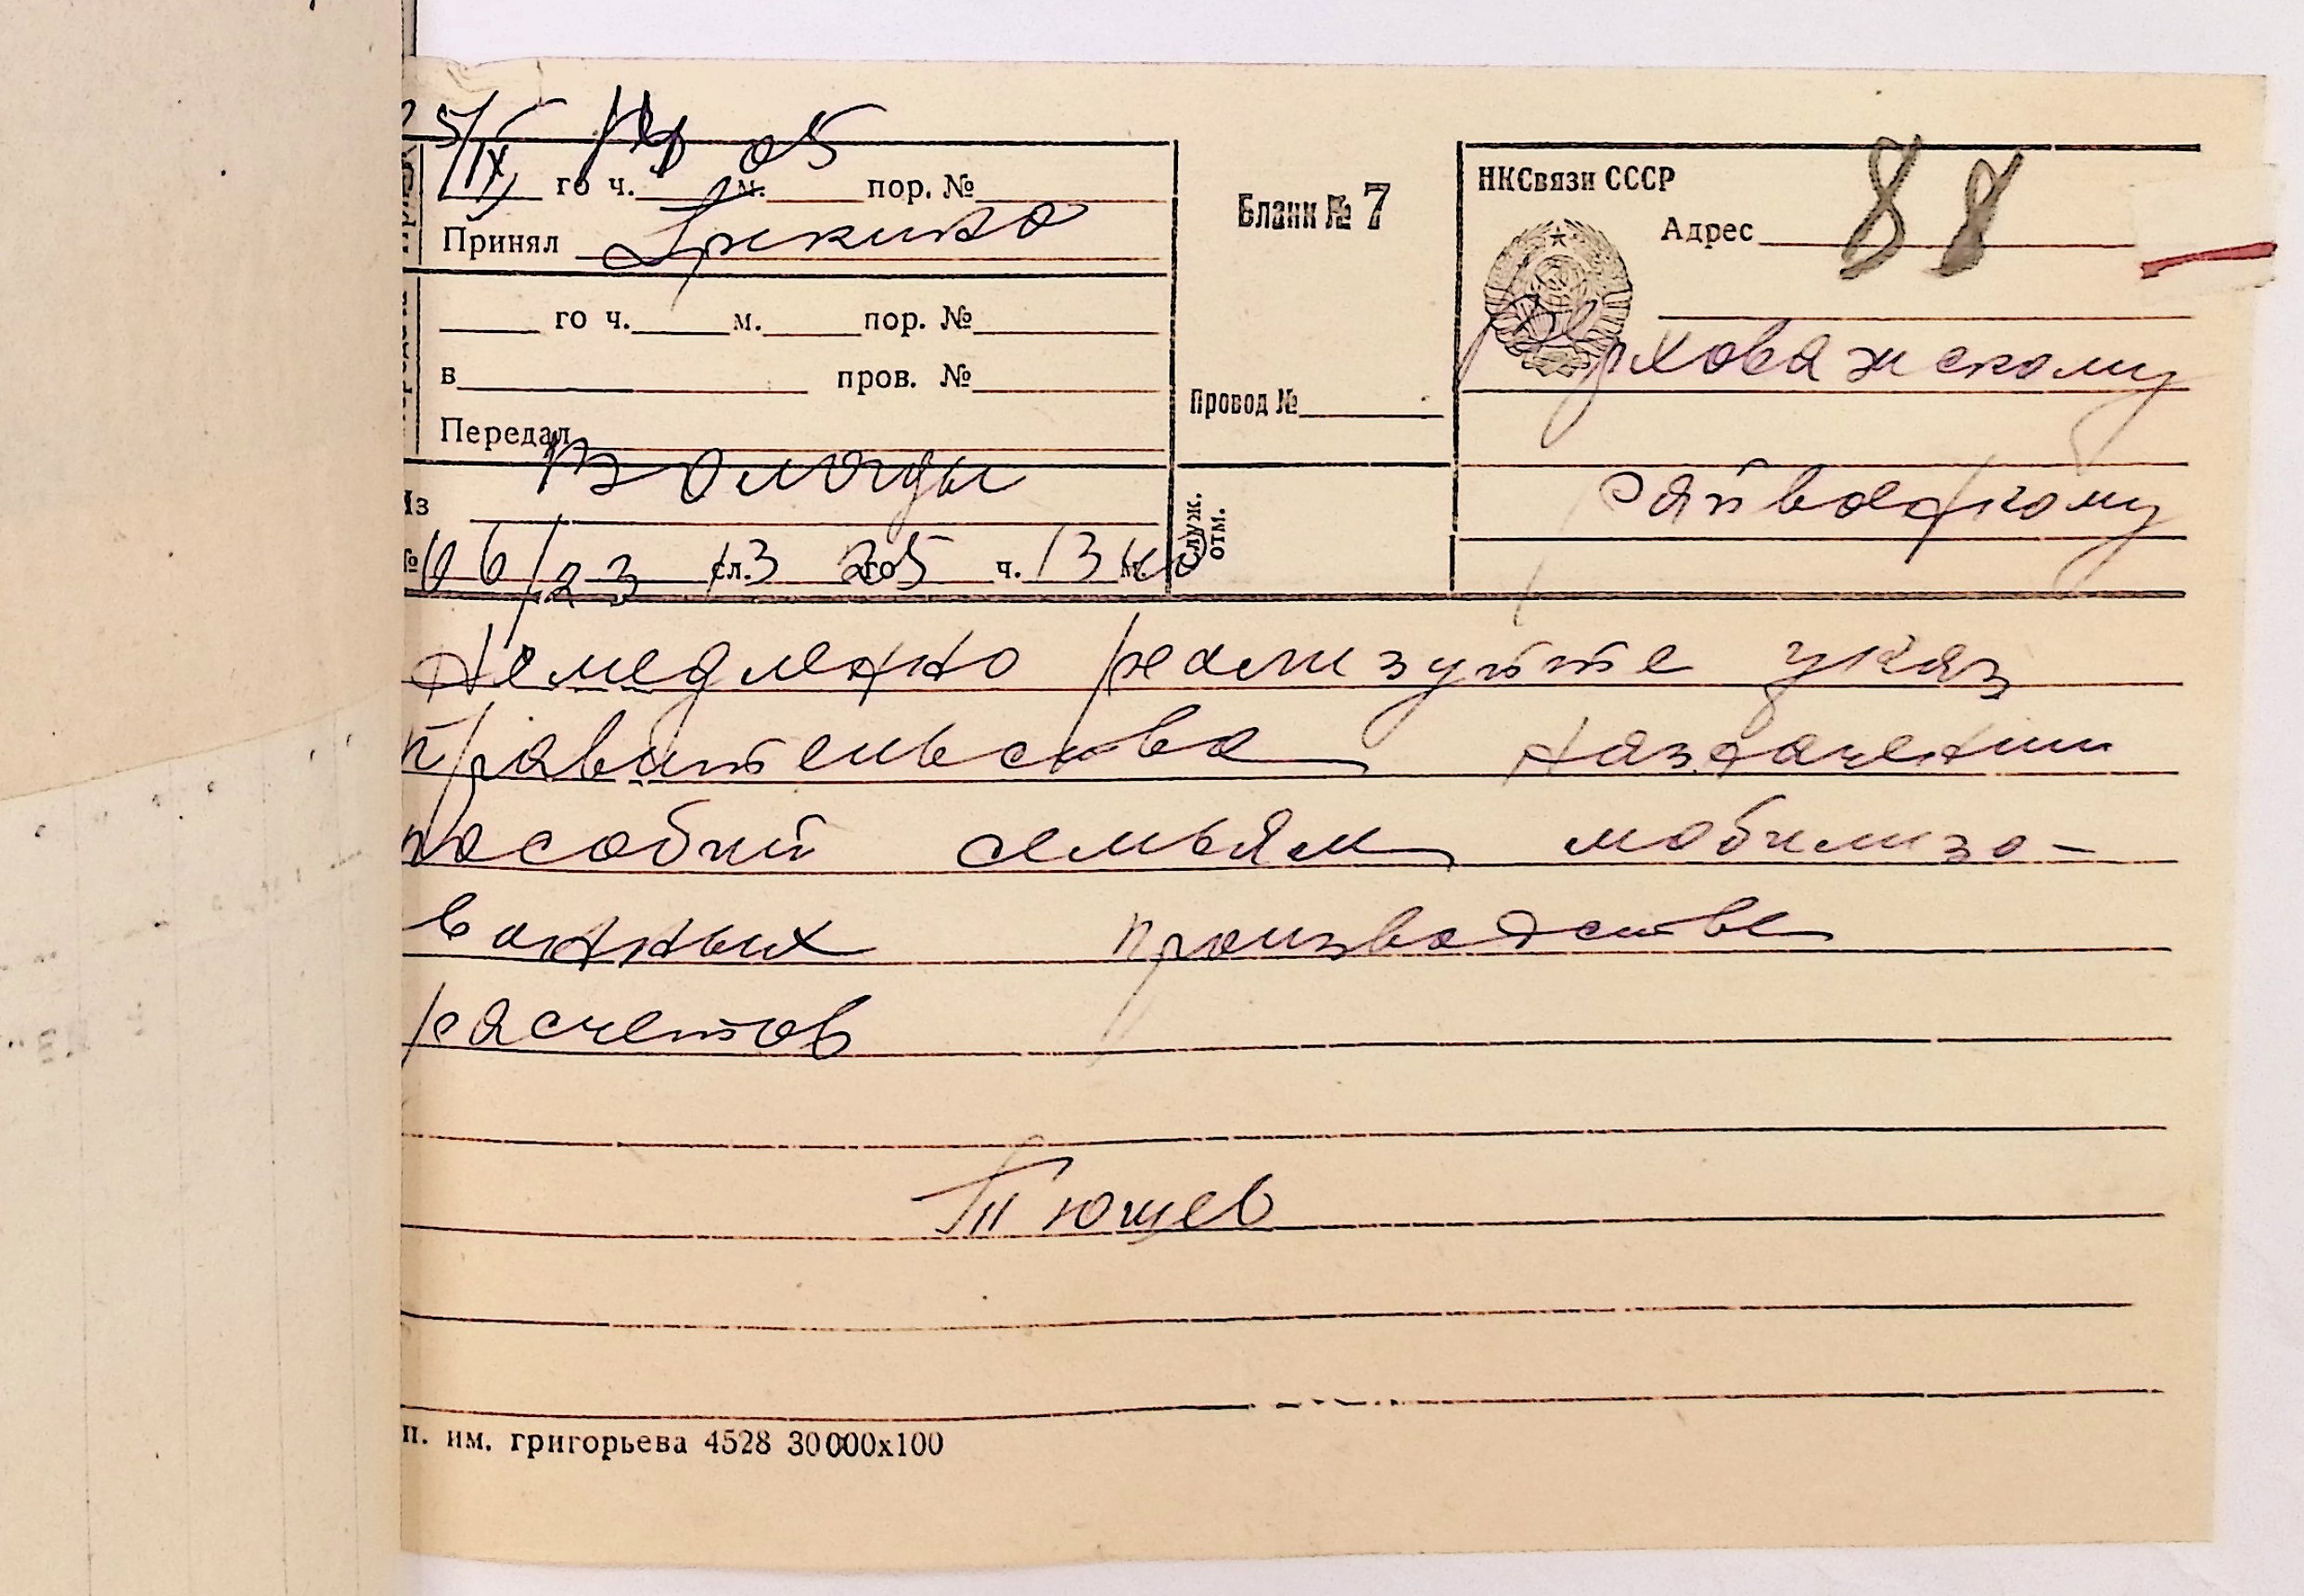 5/IX
го ч. м. пор. №
Принял
го ч. м. пор. №
в пров. №
Передал
Из Вологды
№ 06/23 сл. 13 го 5 ч. 13 м.
Бланк № 7
Провод №
Служ. отм.
НКСвязи СССР
88
Адрес
Верховажскому
райвоенкому
Немедленно реализуйте указ
правительства назначении
пособий семьям мобилизо-
ванных производстве
расчетов
Тющев
п. им. григорьева 4528 30000х100